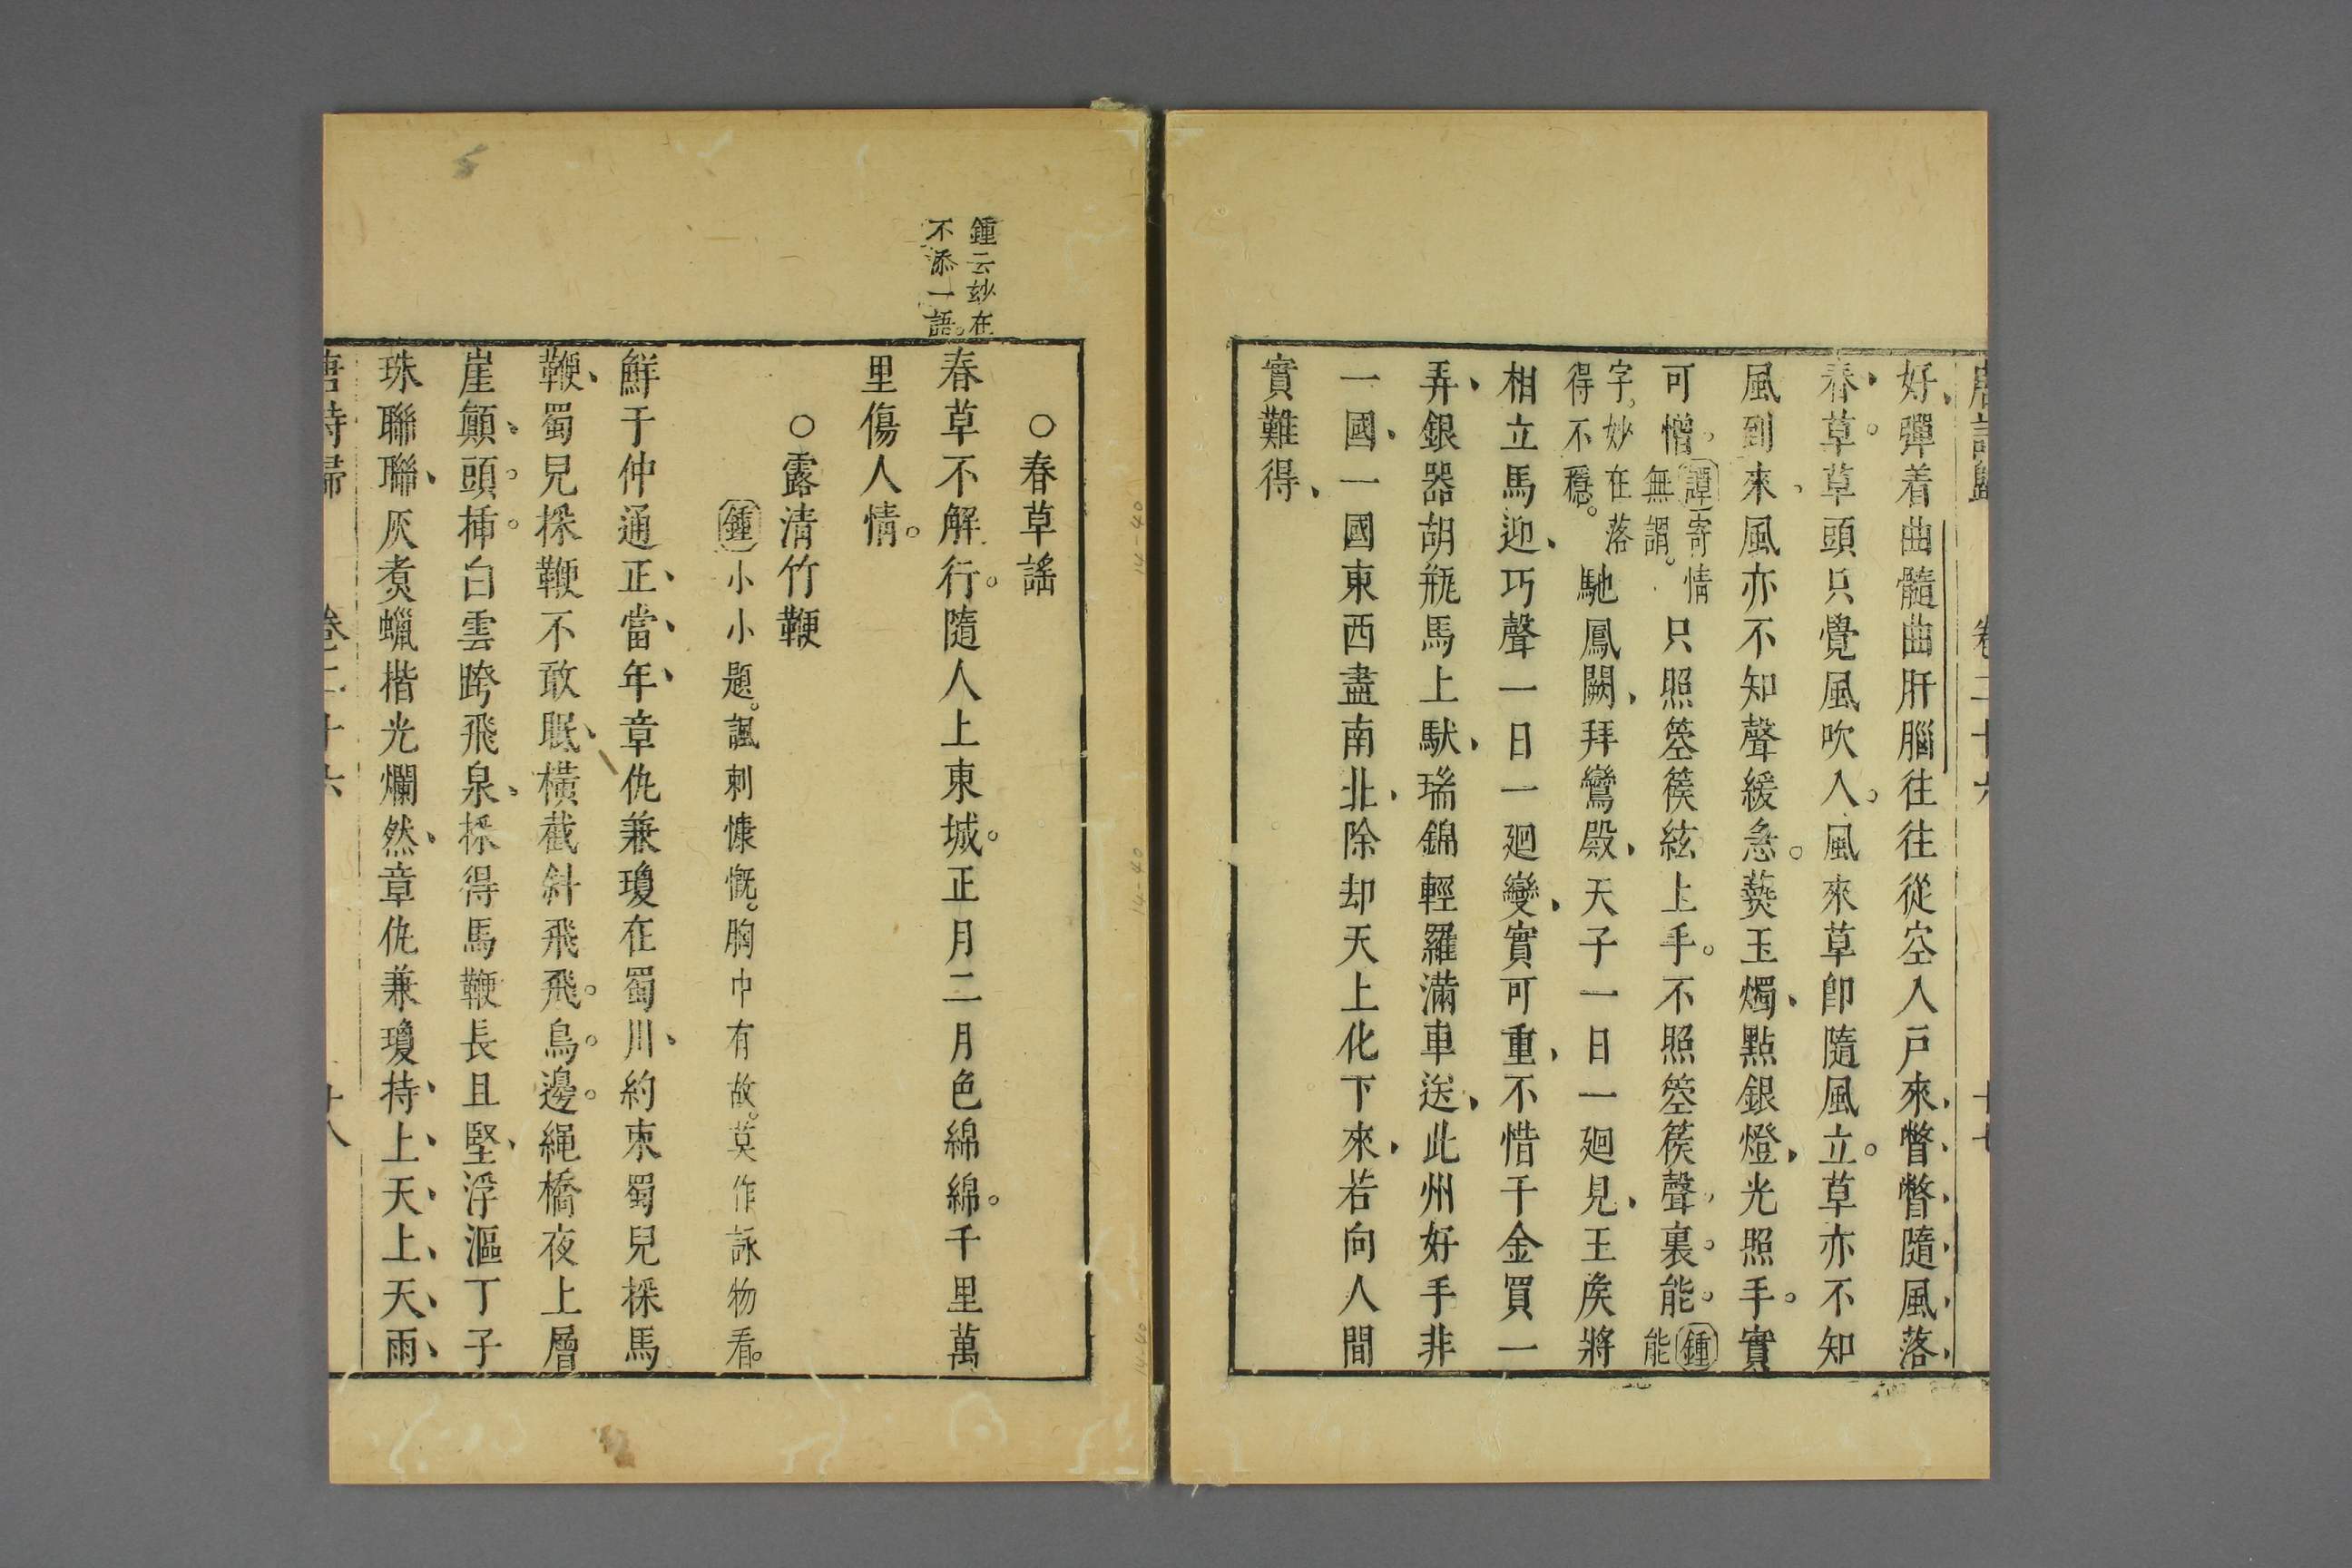 唐詩歸　卷二十六　十七
好彈着曲髓曲肝腦往往從空入戸來瞥瞥隨風落
春草。草頭只覺風吹入。風來草卽隨風立。草亦不知
風到來風亦不知聲緩急。爇玉燭點銀燈光照手。實
可憎。譚寄情無謂。只照箜篌絃上手。不照箜篌聲裏能。鍾能
字。妙在落得不穩。馳鳳闕拜鸞殿天子一日一廻見王矦將
相立馬迎巧聲一日一廻變實可重不惜千金買一
弄銀器胡瓶馬上馱瑞錦輕羅滿車送此州好手非
一國一國東西盡南北除却天上化下來若向人間
實難得
鍾云妙在
不添一語。
○春草謠
春草不解行。隨人上東城。正月二月色綿綿。千里萬
里傷人情。
○露清竹鞭
鍾小小題。諷刺慷慨。胸中有故。莫作詠物看。
鮮于仲通正當年章仇兼瓊在蜀川約束蜀兒採馬
鞭蜀兒採鞭不敢眠橫截斜飛飛。鳥。邊。繩橋夜上層
崖顛頭。揷。白雲跨飛泉採得馬鞭長且堅浮漚丁子
珠聯聯灰煑蠟楷光爛然章仇兼瓊持上天上天雨
唐詩歸　卷二十六　十八